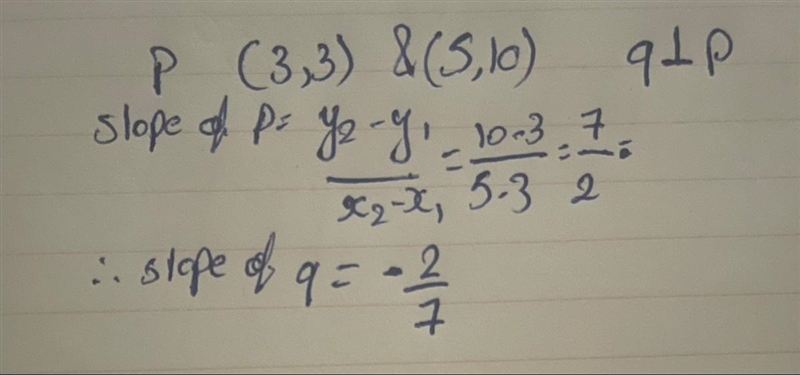 P (3,3) &(5,10) q⊥p
slope of P= y₂-y₁/x₂-x₁ = 10-3/5-3 = 7/2 =
∴ slope of q = -2/7